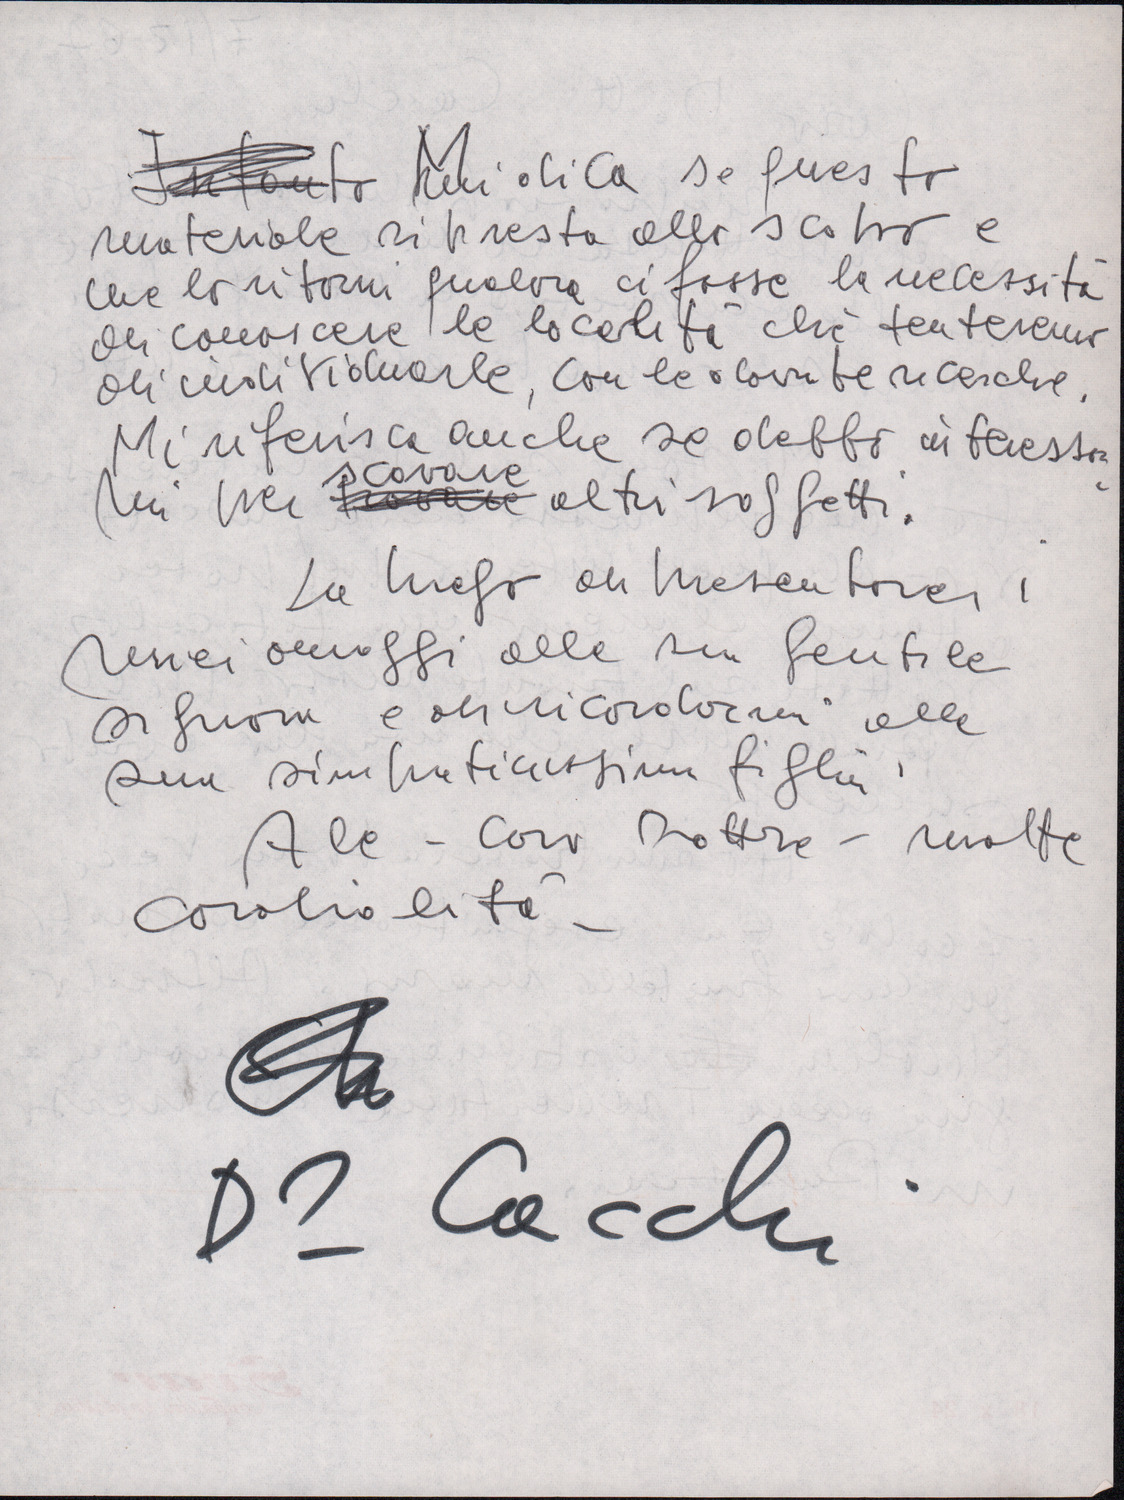 Intanto Mi dica se questo
materiale si presta allo scopo e
me lo ritorni qualora ci fosse la necessità
di conoscere le località che tenteremo
di individuarle, con le dovute ricerche.
Mi riferisca anche se debbo interessar
mi per trovare scovare altri soggetti.
La prego di presentare i
miei omaggi alla sua gentile
signora e di ricordarmi alla
sua simpaticissima figlia!
A le - caro Dottore - molte
cordialità -
Dr Cacchi